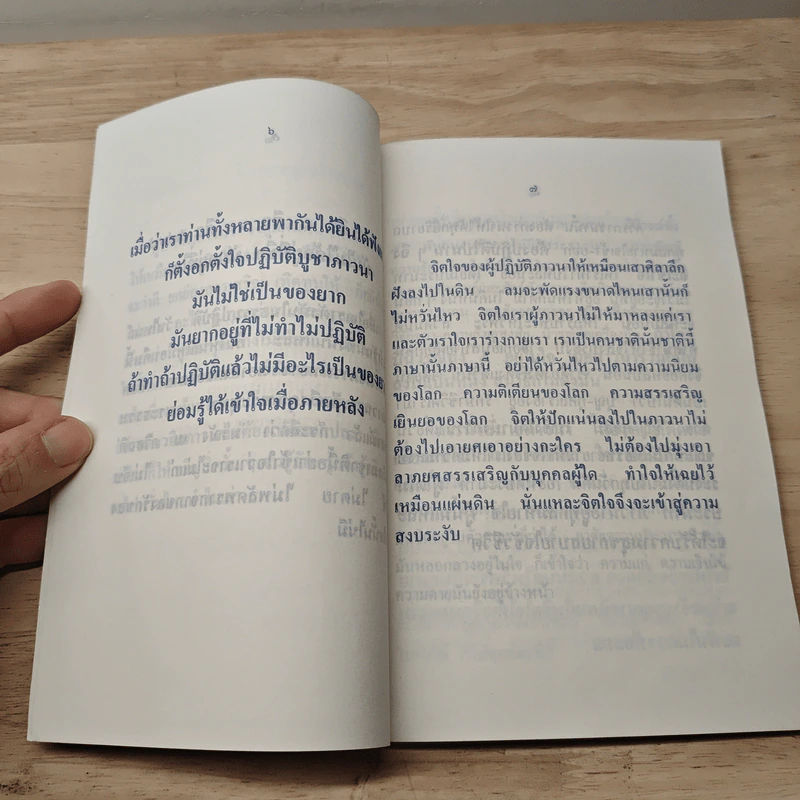 ๖
เมื่อว่าเราท่านทั้งหลายพากันได้ยินได้ฟัง
ก็ตั้งอกตั้งใจปฏิบัติบูชาภาวนา
มันไม่ใช่เป็นของยาก
มันยากอยู่ที่ไม่ทำไม่ปฏิบัติ
ถ้าทำถ้าปฏิบัติแล้วไม่มีอะไรเป็นของยาก
ย่อมรู้ได้เข้าใจเมื่อภายหลัง
๗
จิตใจของผู้ปฏิบัติภาวนาให้เหมือนเสาศิลาลึก
ฝังลงไปในดิน ลมจะพัดแรงขนาดไหนเสานั้นก็
ไม่หวั่นไหว จิตใจเราผู้ภาวนาไม่ให้มาหลงแค่เรา
และตัวเราใจเราร่างกายเรา เราเป็นคนชาตินั้นชาตินี้
ภาษานั้นภาษานี้ อย่าได้หวั่นไหวไปตามความนิยม
ของโลก ความติเตียนของโลก ความสรรเสริญ
เยินยอของโลก จิตให้ปักแน่นลงไปในภาวนาไม่
ต้องไปเอายศเอาอย่างกะใคร ไม่ต้องไปมุ่งเอา
ลาภยศสรรเสริญกับบุคคลผู้ใด ทำใจให้เฉยไว้
เหมือนแผ่นดิน นั่นแหละจิตใจจึงจะเข้าสู่ความ
สงบระงับ